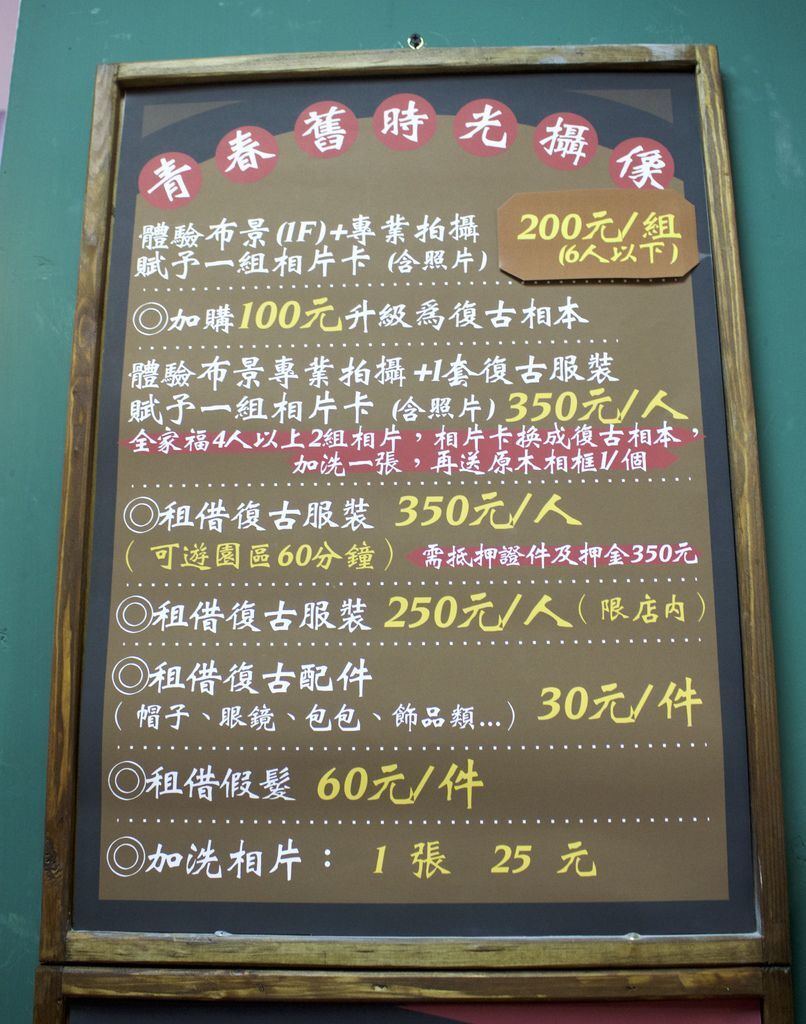 青春舊時光攝像
體驗布景(1F)+專業拍攝
賦予一組相片卡 (含照片)
200元/組
(6人以下)
◎加購100元升級為復古相本
體驗布景專業拍攝+1套復古服裝
賦予一組相片卡 (含照片) 350元/人
全家福4人以上2組相片，相片卡換成復古相本，
加洗一張，再送原木相框1/個
◎租借復古服裝 350元/人
(可遊園區60分鐘) 需抵押證件及押金350元
◎租借復古服裝 250元/人(限店內)
◎租借復古配件
(帽子、眼鏡、包包、飾品類...) 30元/件
◎租借假髮 60元/件
◎加洗相片：1 張 25 元